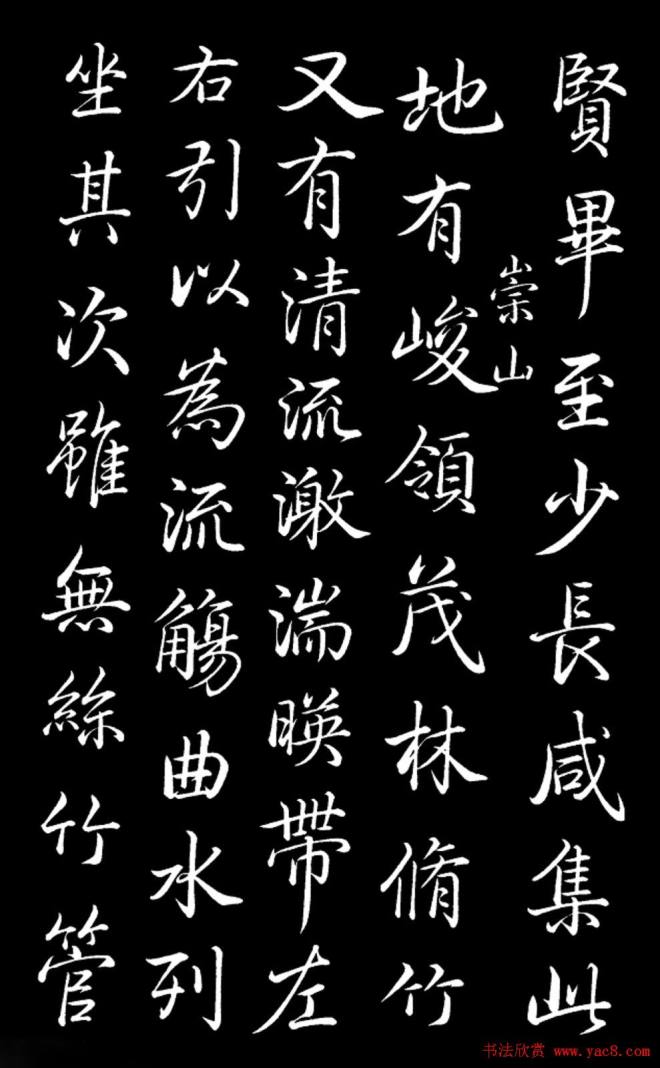 賢畢至少長咸集此
地有崇山峻領茂林脩竹
又有清流激湍暎帶左
右引以為流觴曲水列
坐其次雖無絲竹管
书法欣赏 www.yac8.com